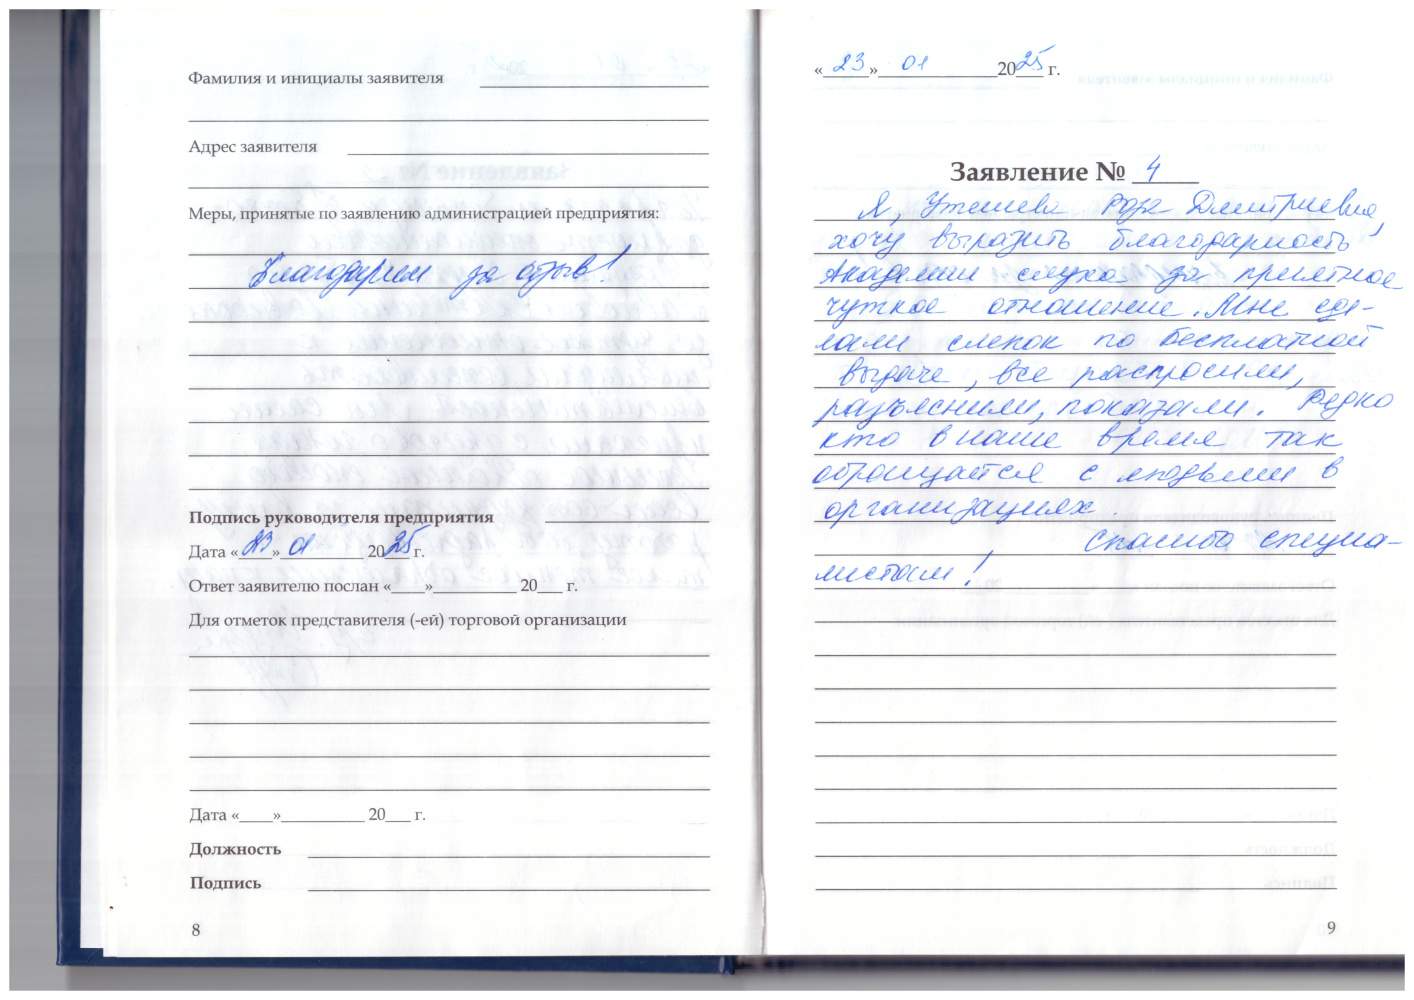 Фамилия и инициалы заявителя
Адрес заявителя
Меры, принятые по заявлению администрацией предприятия:
Благодарим за отзыв!
Подпись руководителя предприятия
Дата «23» 01 2025 г.
Ответ заявителю послан «____»__________ 20___ г.
Для отметок представителя (-ей) торговой организации
Дата «____»__________ 20___ г.
Должность
Подпись
8
«23» 01 2025 г.
Заявление № 4
Я, Утешева Роза Дмитриевна,
хочу выразить благодарность
Академии слуха за приятное
чуткое отношение. Мне сде-
лали слепок по бесплатной
выдаче, все распросили,
разъяснили, показали. Редко
кто в наше время так
обращается с людьми в
организациях.
Спасибо специа-
листам!
9